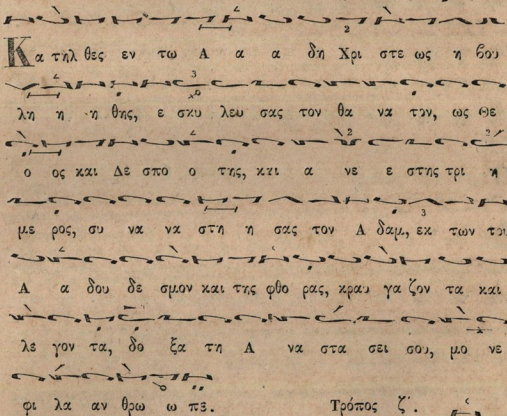 Κα τηλ θες εν τω Α α α δη Χρι στε ως η βου
λη η η θης, ε σκυ λευ σας τον θα να τον, ως Θε
ο ος και Δε σπο ο της, και α νε ε στης τρι η
με ρος, συ να να στη η σας τον Α δαμ, εκ των του
Α α δου δε σμον και της φθο ρας, κραυ γα ζον τα και
λε γον τα, δο ξα τη Α να στα σει σου, μο νε
φι λα αν θρω ω πε. Τρόπος ζ΄.